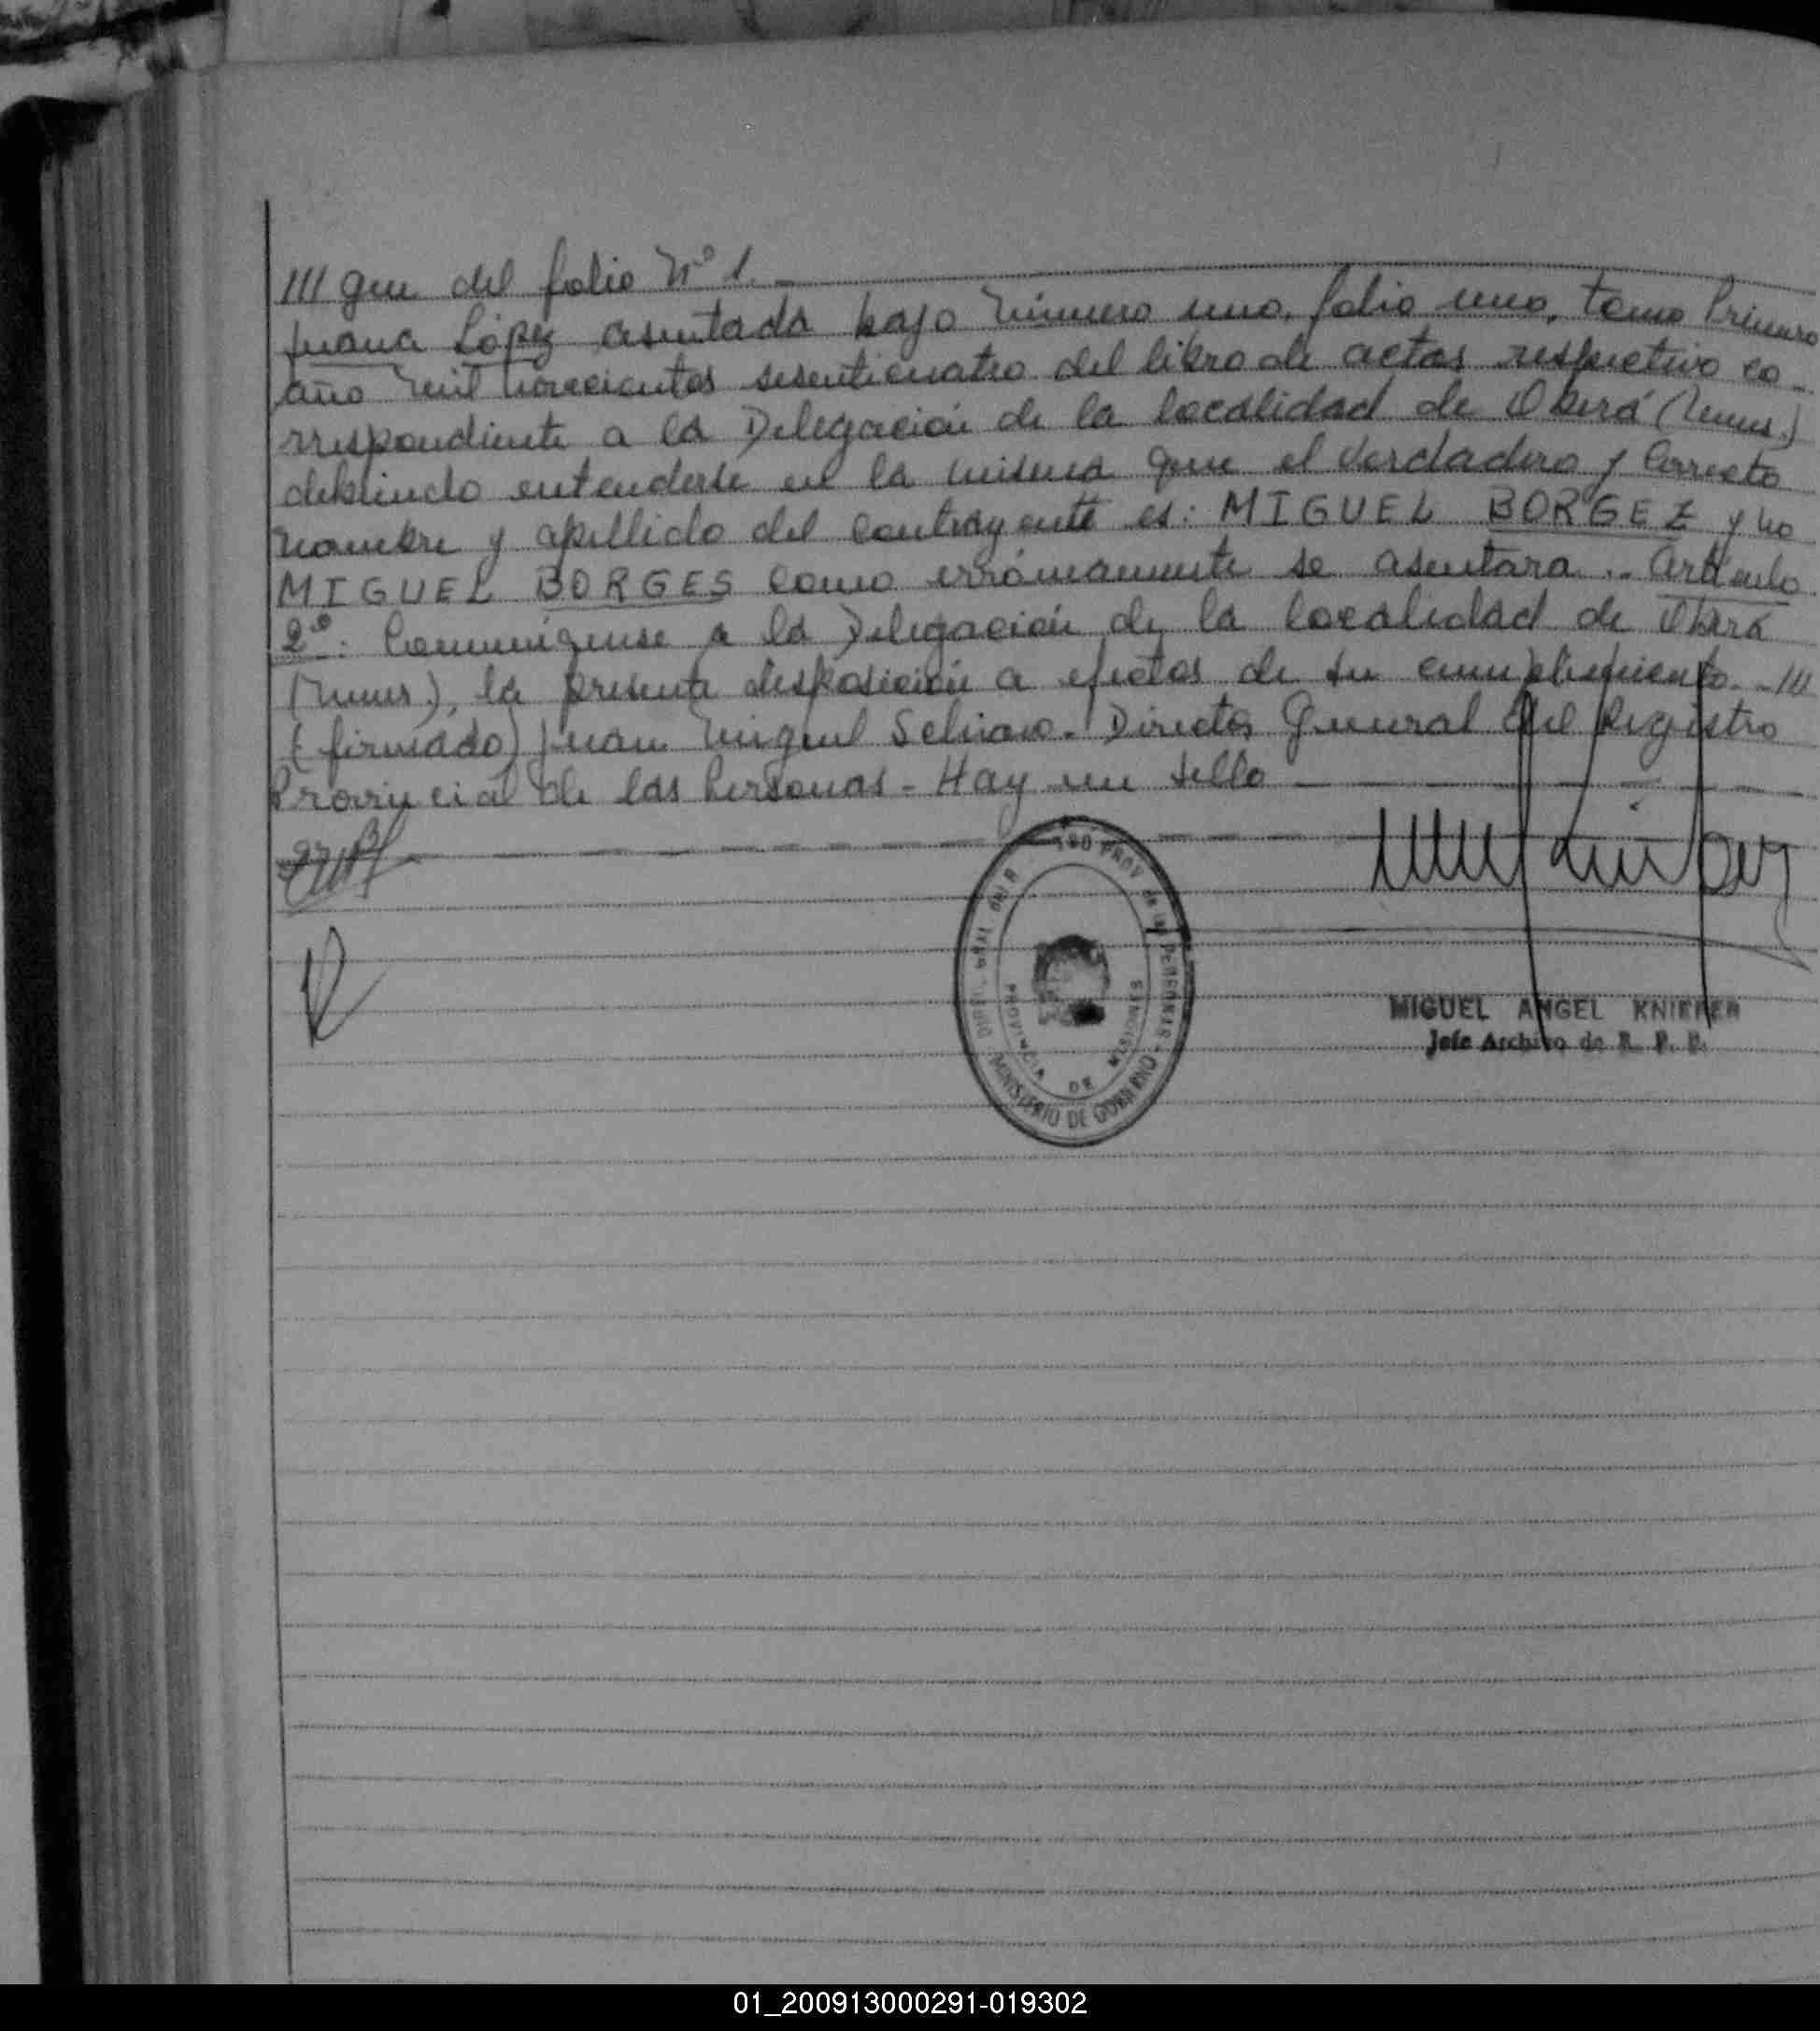 /// que del folio Nº 1.-
Juana López asentada bajo Número uno, folio uno, tomo Primero
año mil novecientos sesenticuatro del libro de actas respectivo co-
rrespondiente a la Delegación de la localidad de Oberá (Mnes.)
debiendo entenderse en la misma que el verdadero y correcto
nombre y apellido del contrayente es: MIGUEL BORGEZ y no
MIGUEL BORGES como erróneamente se asentara.- Artículo
2º: Comuníquese a la Delegación de la localidad de Oberá
(Mnes.), la presente disposición a efectos de su cumplimiento.- ///
(firmado) Juan Miguel - Director General del Registro
Provincial de las Personas - Hay un sello
PROV de las PERSONAS
PROVINCIA DE MISIONES
MINISTERIO DE GOBIERNO
MIGUEL ANGEL KNIEFER
Jefe Archivo de R. P. P.
01_200913000291-019302